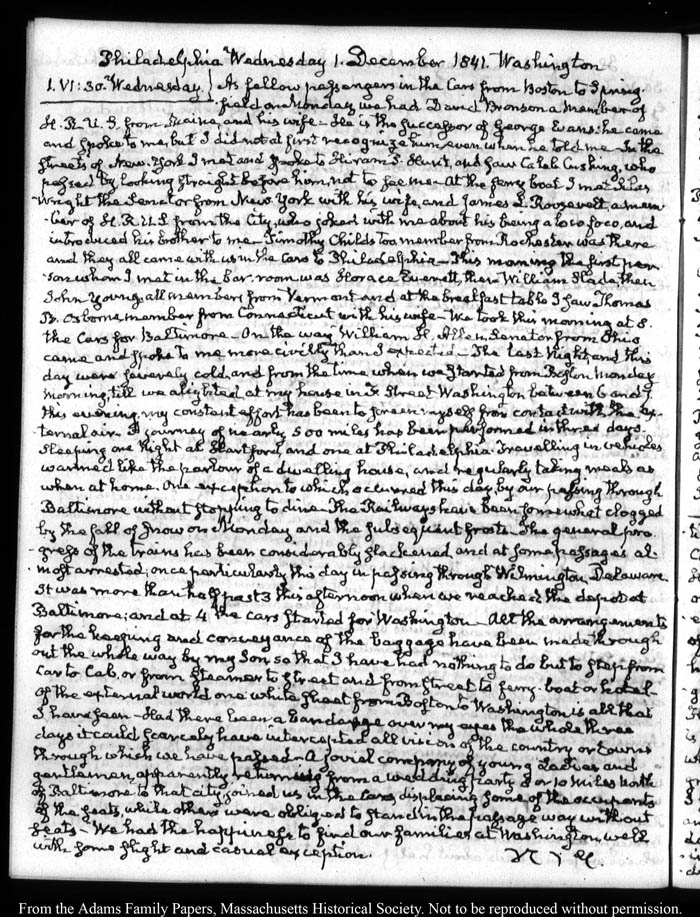 Philadelphia Wednesday 1. December 1841. Washington
1. VI:30. Wednesday. As fellow passengers in the Cars from Boston to Spring-
field on Monday we had David Bronson a Member of
H.R.U.S. from Maine, and his wife. He is the successor of George Evans: he came
and spoke to me but I did not at first recognize him, even when he told me. In the
streets of New-York I met and spoke to Hiram P. Hunt, and saw Caleb Cushing, who
passed by looking straight before him, not to see me. At the ferry boat I met Silas
Wright the Senator from New York with his wife, and James I. Roosevelt, a mem-
ber of H.R.U.S. from the City, who joked with me about his being a loco foco, and
introduced his brother to me. Timothy Childs too member from Rochester was there
and they all came with us in the Cars to Philadelphia. This morning the first per-
son whom I met in the bar-room was Horace Everett, then William Slade, then
John Young, all members from Vermont and at the breakfast table I saw Thomas
B. Osborne, member from Connecticut with his wife. We took this morning at 8.
the Cars for Baltimore. On the way William H. Allen, Senator from Ohio
came and spoke to me more civilly than I expected. The last Night and this
day were severely cold, and from the time when we started from Boston Monday
morning till we alighted at my house in F Street Washington between 6 and 7.
this evening my constant effort has been to screen myself from contact with the ex-
ternal air. A journey of nearly 500 miles has been performed in three days.
sleeping one Night at Hartford, and one at Philadelphia. Travelling in vehicles
warmed like the parlour of a dwelling house, and regularly taking meals as
when at home. One exception to which occurred this day, by our passing through
Baltimore without stopping to dine. The Railways have been somewhat clogged
by the fall of snow on Monday and the subsequent frosts. The general pro-
gress of the trains has been considerably slackened, and at some passages al-
most arrested; once particularly this day in passing through Wilmington, Delaware.
It was more than half past 3 this afternoon when we reached the depot at
Baltimore; and at 4 the cars started for Washington. All the arrangements
for the keeping and conveyance of the baggage have been made through-
out the whole way by my Son, so that I have had nothing to do but to step from
Car to Cab, or from steamer to street and from street to ferry-boat or hotel.
Of the external world one white sheet from Boston to Washington is all that
I have seen. Had there been a bandage over my eyes the whole three
days it could scarcely have intercepted all vision of the country or towns
through which we have passed. A jovial company of young Ladies and
gentlemen, apparently returning from a wedding party 8 or 10 miles North
of Baltimore to that city, joined us in the Cars, displacing some of the occupants
of the seats, while others were obliged to stand in the passage way without
seats. We had the happiness to find our families at Washington, well
with some slight and casual exception.
From the Adams Family Papers, Massachusetts Historical Society. Not to be reproduced without permission.